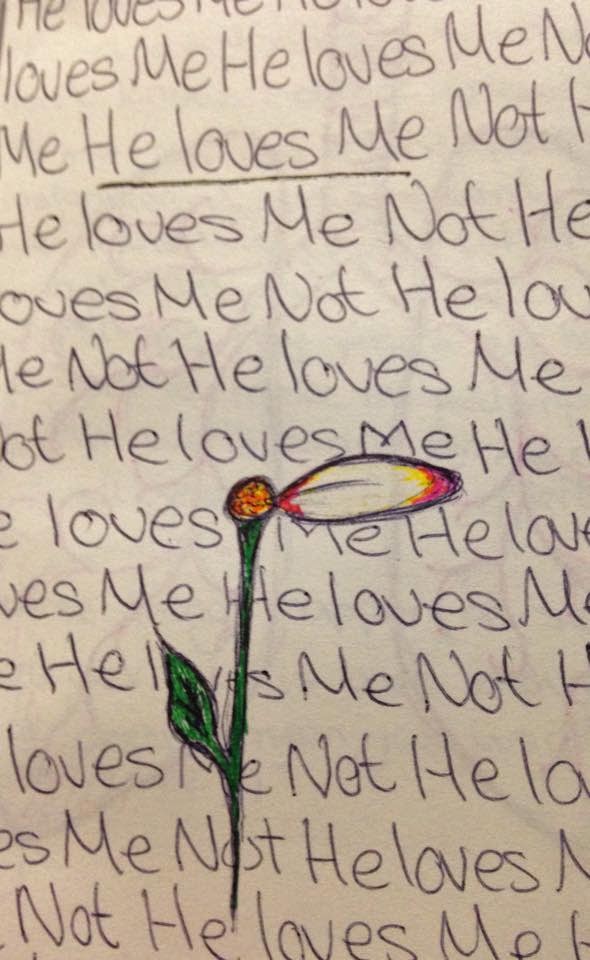 He loves Me He loves
loves Me He loves Me No
Me He loves Me Not H
He loves Me Not He
oves Me Not He lov
Me Not He loves Me
ot He loves Me He l
e loves Me He love
ves Me He loves Me
e He loves Me Not H
loves Me Not He lo
es Me Not He loves M
Not He loves Me H